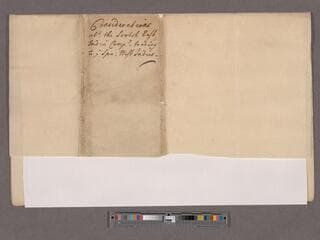 Considerations
abt. the Scotch East
India Compa. trading
to ye Spa: West Indies.